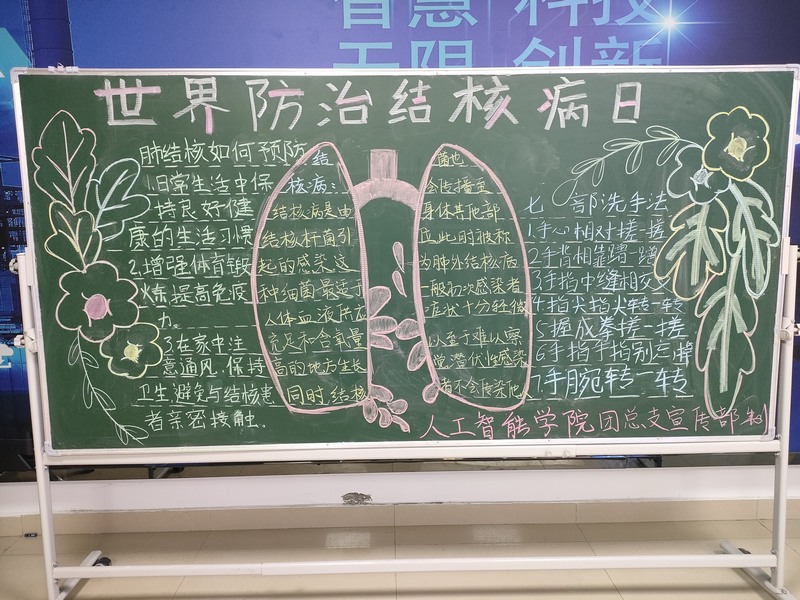 智慧 科技
无限 创新
世界防治结核病日
肺结核如何预防
1.日常生活中保
持良好健
康的生活习惯
2.增强体育锻
炼,提高免疫
力。
3.在家中注
意通风,保持
卫生,避免与结核患
者亲密接触。
结
核病:
结核病是由
结核杆菌引
起的感染,这
种细菌最适于
人体血液供应
充足和含氧量
高的地方生长
同时,结核
菌也
会传播至
身体其他部
位,此时被称
为肺外结核病
一般初次感染者
症状十分轻微
以至于难以察
觉,潜伏性感染
者不会传染他
七 部洗手法
1.手心相对搓一搓
2.手背相靠蹭一蹭
3.手指中缝相交叉
4.指尖指尖转一转
5.握成拳搓一搓
6.手指
7.手腕转一转
人工智能学院团总支宣传部 制